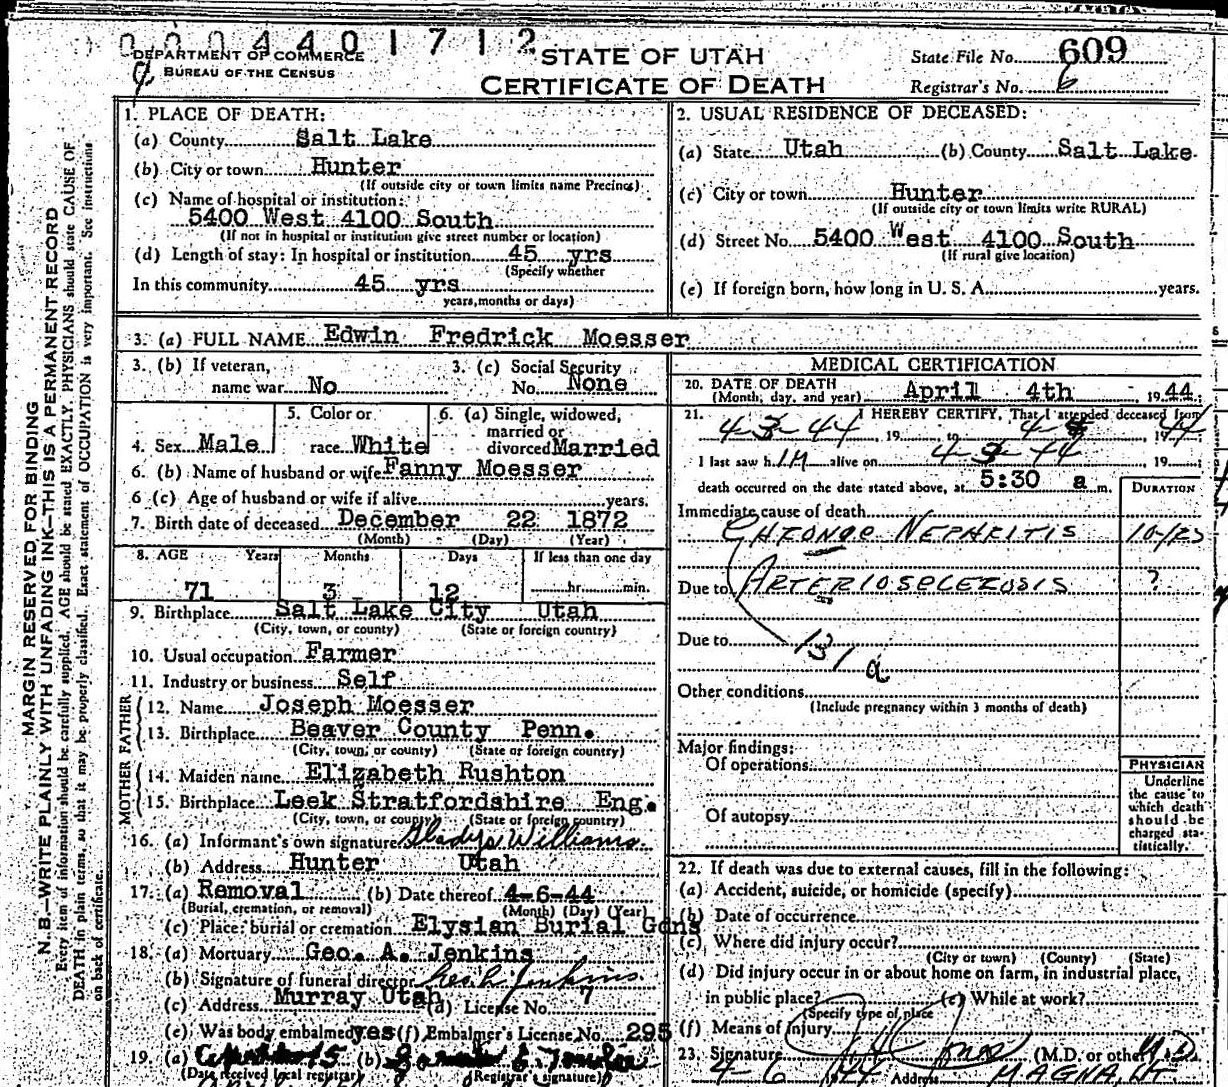 0004401712
DEPARTMENT OF COMMERCE
BUREAU OF THE CENSUS
STATE OF UTAH
CERTIFICATE OF DEATH
State File No. 609
Registrar's No. 6
MARGIN RESERVED FOR BINDING
N. B.—WRITE PLAINLY WITH UNFADING INK—THIS IS A PERMANENT RECORD
Every item of information should be carefully supplied. AGE should be stated EXACTLY. PHYSICIANS should state CAUSE OF
DEATH in plain terms, so that it may be properly classified. Exact statement of OCCUPATION is very important. See instructions
on back of certificate.
1. PLACE OF DEATH:
(a) County Salt Lake
(b) City or town Hunter
(If outside city or town limits name Precinct)
(c) Name of hospital or institution:
5400 West 4100 South
(If not in hospital or institution give street number or location)
(d) Length of stay: In hospital or institution 45 yrs
(Specify whether
In this community 45 yrs
years, months or days)
2. USUAL RESIDENCE OF DECEASED:
(a) State Utah (b) County Salt Lake
(c) City or town Hunter
(If outside city or town limits write RURAL)
(d) Street No. 5400 West 4100 South
(If rural give location)
(e) If foreign born, how long in U. S. A. years.
3. (a) FULL NAME Edwin Fredrick Moesser
3. (b) If veteran, 3. (c) Social Security
name war No No. None
4. Sex Male
5. Color or
race White
6. (a) Single, widowed,
married or
divorced Married
6. (b) Name of husband or wife Fanny Moesser
6 (c) Age of husband or wife if alive years.
7. Birth date of deceased December 22 1872
(Month) (Day) (Year)
8. AGE Years Months Days If less than one day
71 3 12 hr. min.
9. Birthplace Salt Lake City Utah
(City, town, or county) (State or foreign country)
10. Usual occupation Farmer
11. Industry or business Self
FATHER
12. Name Joseph Moesser
13. Birthplace Beaver County Penn.
(City, town, or county) (State or foreign country)
MOTHER
14. Maiden name Elizabeth Rushton
15. Birthplace Leek Stratfordshire Eng.
(City, town, or county) (State or foreign country)
16. (a) Informant's own signature Gladys Williams
(b) Address Hunter Utah
17. (a) Removal (b) Date thereof 4-6-44
(Burial, cremation, or removal) (Month) (Day) (Year)
(c) Place: burial or cremation Elysian Burial Gdns
18. (a) Mortuary Geo. A. Jenkins
(b) Signature of funeral director
(c) Address Murray Utah (d) License No. 7
(e) Was body embalmed yes (f) Embalmer's License No. 295
19. (a) (b)
(Date received local registrar) (Registrar's signature)
MEDICAL CERTIFICATION
20. DATE OF DEATH
(Month, day, and year) April 4th 1944
21. I HEREBY CERTIFY, That I attended deceased from
4-3-44, 19 to 4- 1944
I last saw h im alive on 4-3-44 19
death occurred on the date stated above, at 5:30 a m.
DURATION
Immediate cause of death
CHRONIC NEPHRITIS
Due to ARTERIOSCLEROSIS ?
Due to
131 a
Other conditions
(Include pregnancy within 3 months of death)
Major findings:
Of operations
Of autopsy
PHYSICIAN
Underline
the cause to
which death
should be
charged sta-
tistically.
22. If death was due to external causes, fill in the following:
(a) Accident, suicide, or homicide (specify)
(b) Date of occurrence
(c) Where did injury occur?
(City or town) (County) (State)
(d) Did injury occur in or about home on farm, in industrial place,
in public place? (e) While at work?
(Specify type of place
(f) Means of Injury
23. Signature (M.D. or other) M.D.
4-6 1944 Address MAGNA, UT